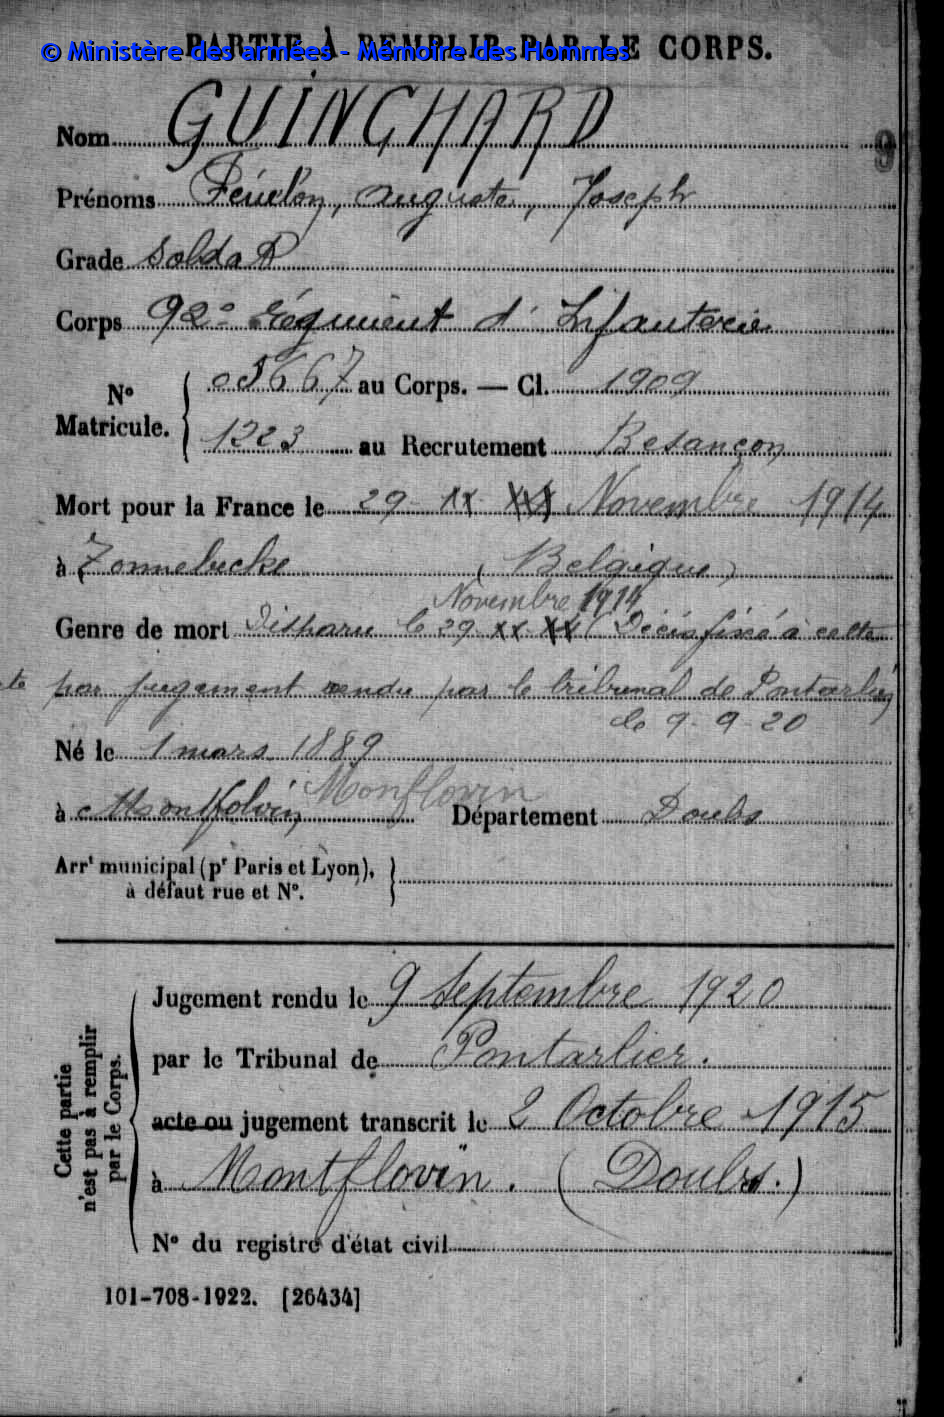 PARTIE À REMPLIR PAR LE CORPS.
© Ministère des armées - Mémoire des Hommes
Nom GUINCHARD
9
Prénoms Fénelon, Auguste, Joseph
Grade Soldat
Corps 92e Régiment d'Infanterie
N° Matricule. 05667 au Corps. — Cl. 1909
1223 au Recrutement Besançon
Mort pour la France le 29 Novembre 1914
à Zonnebecke (Belgique)
Novembre 1914
Genre de mort Disparu le 29 (Décès fixé à cette
par jugement rendu par le tribunal de Pontarlier
le 9-9-20
Né le 1 mars 1889
Monflovin
à Montflovin Département Doubs
Arrt municipal (pr Paris et Lyon),
à défaut rue et N°.
Cette partie
n'est pas à remplir
par le Corps.
Jugement rendu le 9 Septembre 1920
par le Tribunal de Pontarlier.
acte ou jugement transcrit le 2 Octobre 1915
à Montflovin. (Doubs.)
N° du registre d'état civil
101-708-1922. [26434]